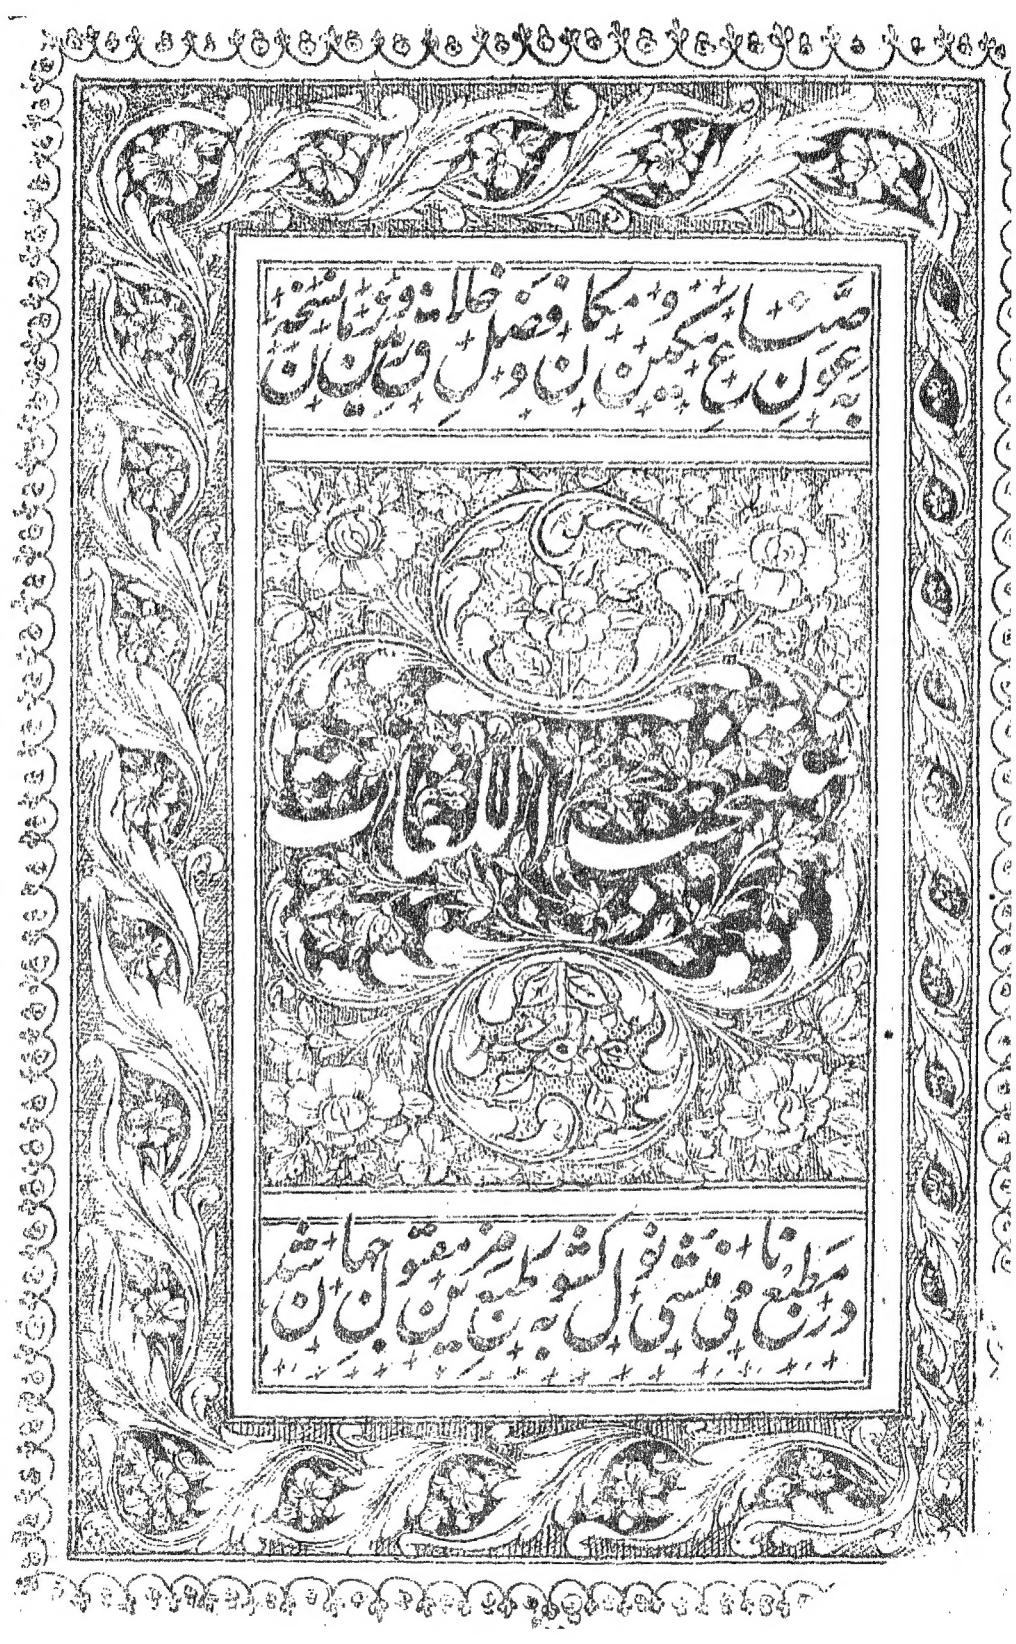 بعون صناع مکین و مکان و فضل خلاق زمین و زمان نسخه
منتخب اللغات
در مطبع نامی منشی نول کشور بطبع مزین مقبول جهان شد